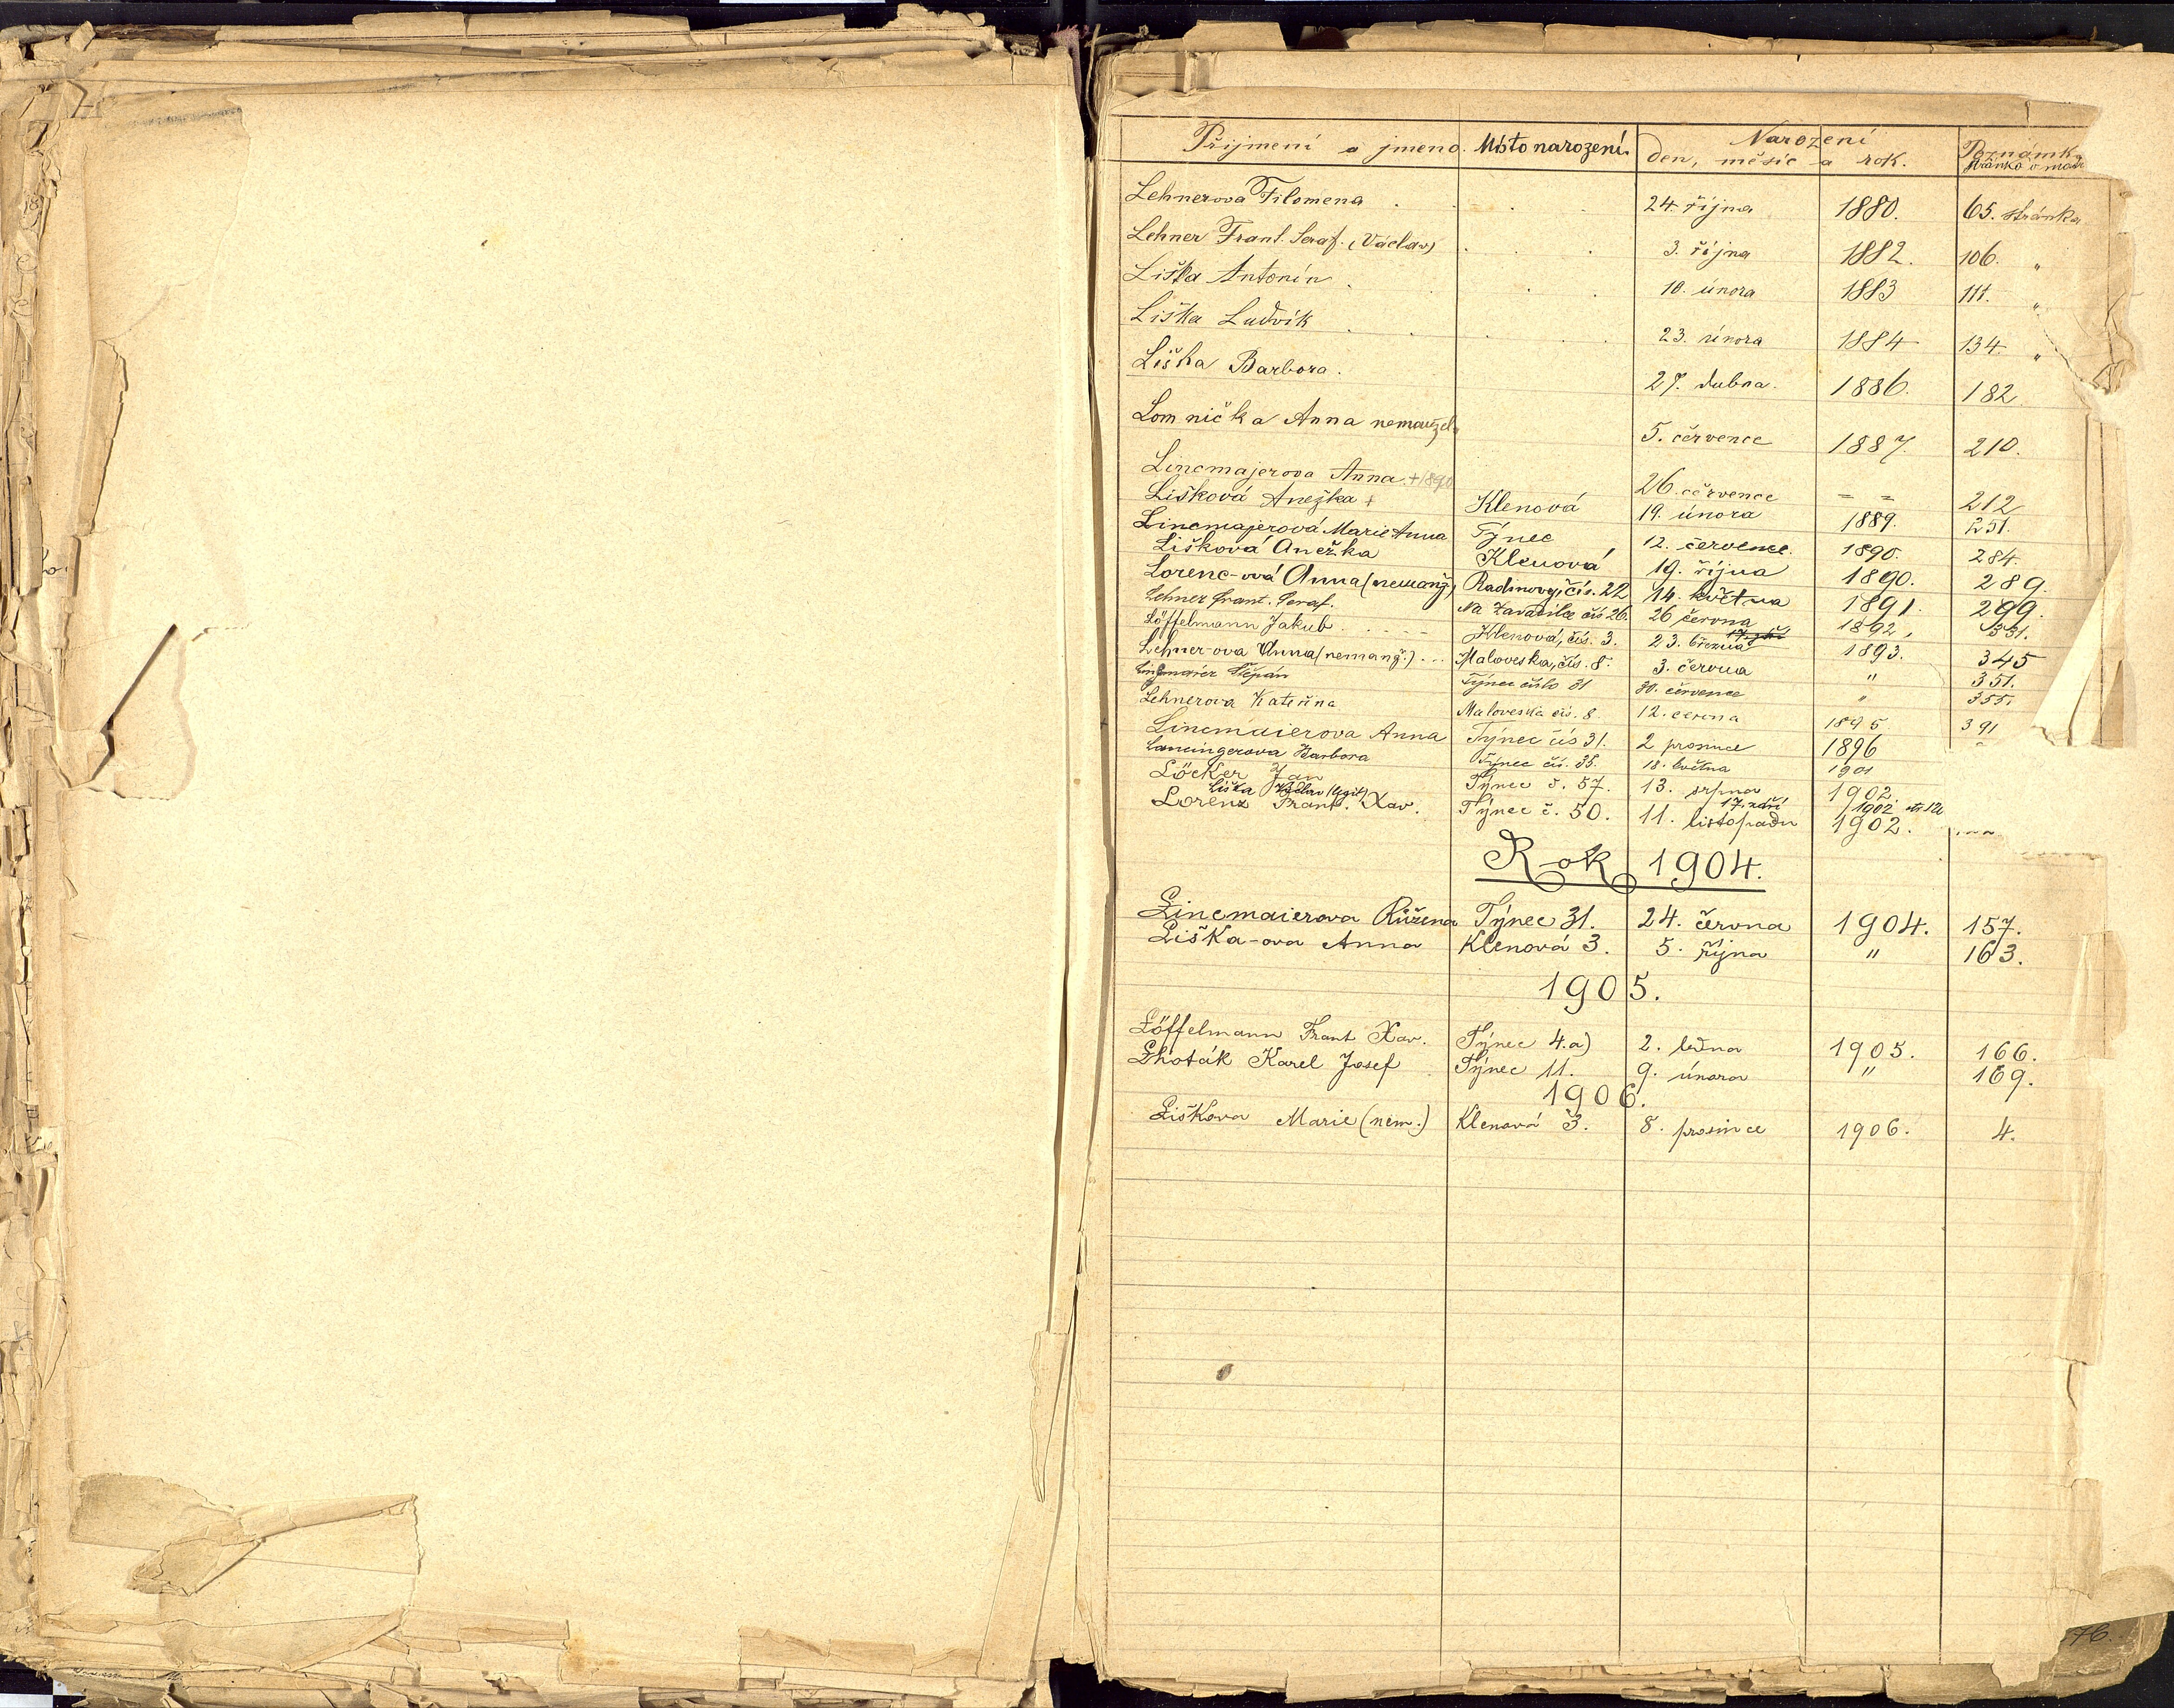 Přijmení a jmeno. Místo narození. Narození Poznámka
den, měsíc a rok. stránka v matr
Lehnerova Filomena 24. října 1880. 65. stránka
Lehner Frant. Seraf. (Václav) 3. října 1882. 106. "
Liška Antonín 10. února 1883 111. "
Liška Ludvík 23. února 1884 134. "
Liška Barbora. 27. dubna. 1886. 182
Lomnička Anna nemanžel. 5. července 1887. 210.
Lincmajerova Anna + 1890 26. července = = 212
Lišková Anežka + Klenová 19. února 1889. 251.
Lincmajerová Marie Anna Týnec 12. července. 1890. 284.
Lišková Anežka Klenová 19. října 1890. 289.
Lorenc-ová Anna (nemanž.) Radinovy, čís. 22 14. května 1891. 299.
Lehner Frant. Seraf. Na Zavadilce čís 26. 26 června 1892. 331.
Löffelmann Jakub Klenová, čís. 3. 23. března 1893. 345
Lehner-ova Anna (nemanž.) Maloveska, čís. 8. 3. června " 351.
Lincmaier Štěpán Týnec číslo 31 30. července " 355.
Lehnerova Kateřina Maloveska čís. 8. 12. června 1895 391
Lincmaierova Anna Týnec čís 31. 2 prosince 1896
Lancingerova Barbora Týnec čís. 35. 18. května 1901
Löcker Jan Týnec č. 57. 13. srpna 1902.
Liška Václav (legit) 17. září 1902
Lorenz Frant. Xav. Týnec č. 50. 11. listopadu 1902.
Rok 1904.
Lincmaierova Růžena Týnec 31. 24. června 1904. 157.
Liška-ova Anna Klenová 3. 5. října " 163.
1905.
Löffelmann Frant Xav. Týnec 4.a) 2. ledna 1905. 166.
Lhoták Karel Josef Týnec 11. 9. února " 169.
1906.
Liškova Marie (nem.) Klenová 3. 8. prosince 1906. 4.
76.